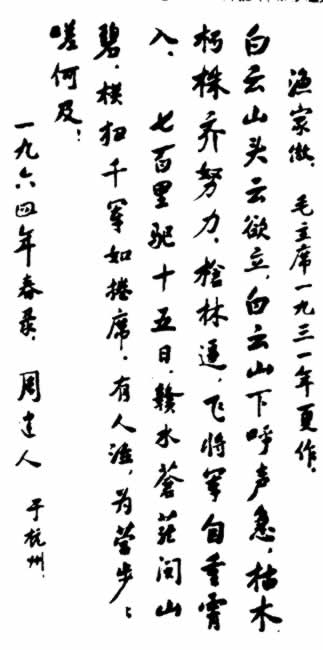 渔家傲。毛主席一九三一年夏作。
白云山头云欲立,白云山下呼声急,枯木
朽株齐努力。槍林逼,飞将军自重霄
入。 七百里驱十五日,赣水蒼茫闽山
碧,横扫千军如捲席。有人泣,为营步々
嗟何及!
一九六四年春录,周建人 于杭州